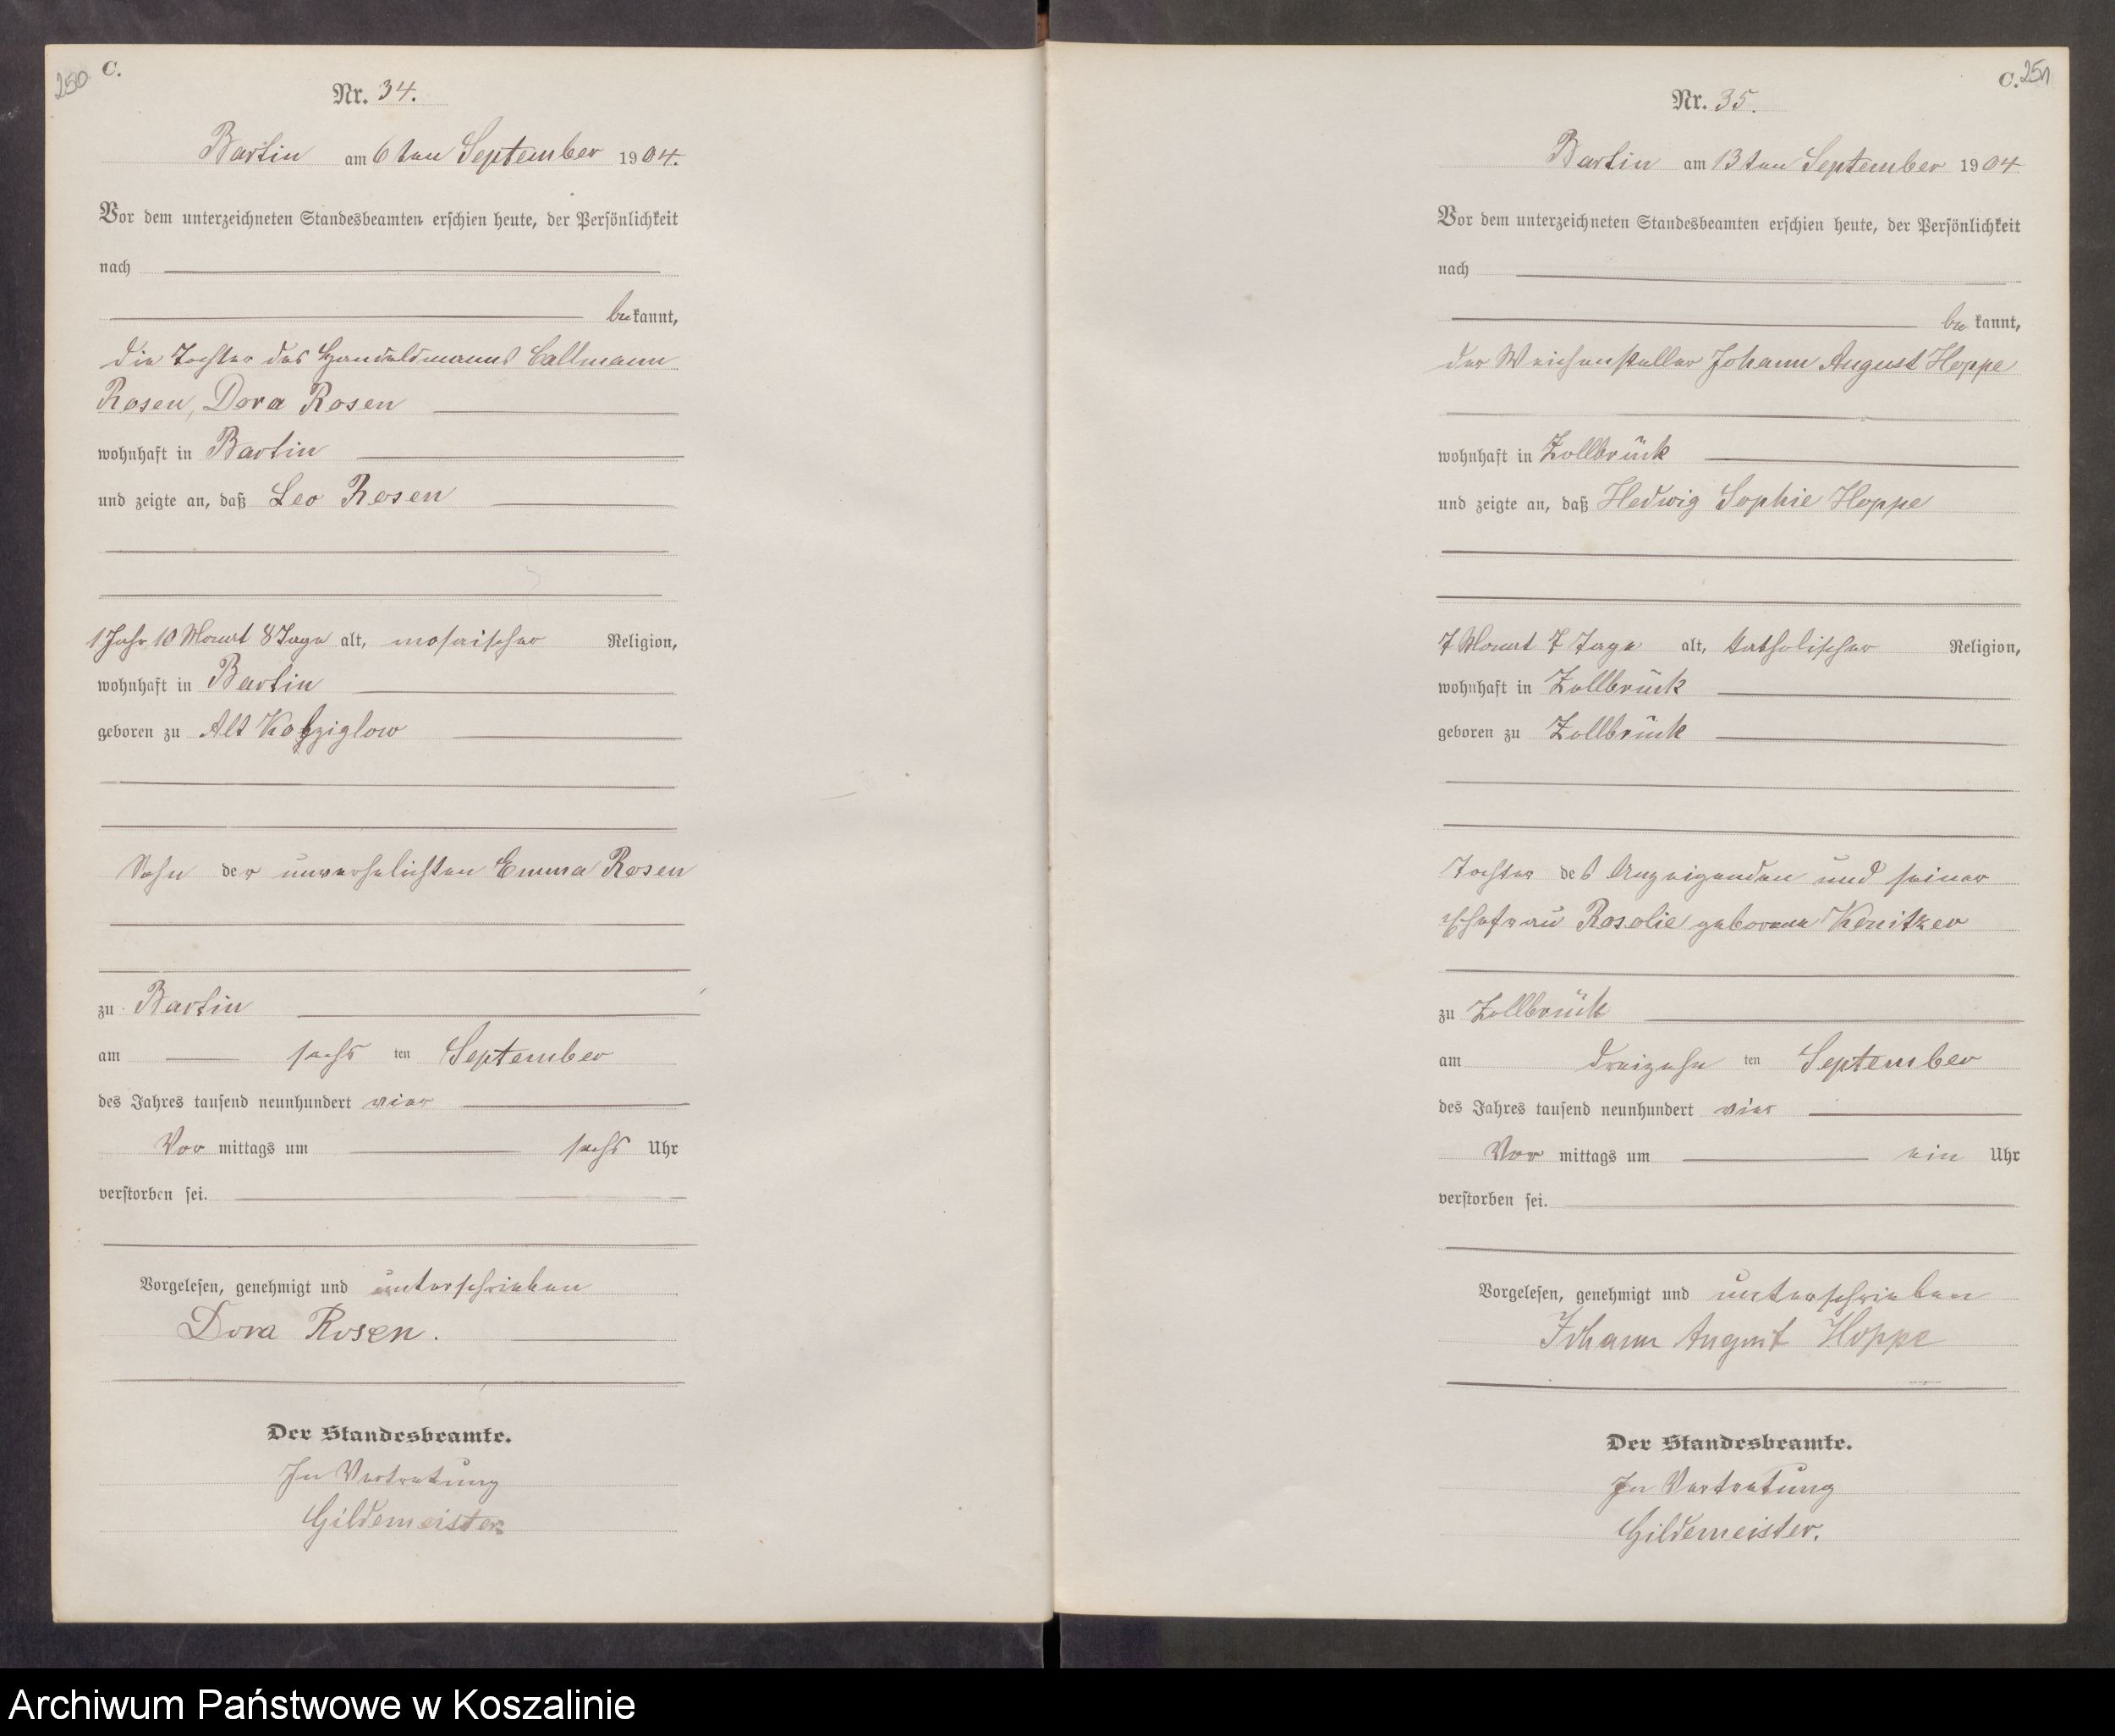 250
C.
Nr. 34.
Bartin am 6ten September 1904.
Vor dem unterzeichneten Standesbeamten erschien heute, der Persönlichkeit
nach
bekannt,
die Tochter des Handelsmanns Callmann
Rosen, Dora Rosen
wohnhaft in Bartin
und zeigte an, daß Leo Rosen
1 Jahr 10 Monat 8 Tage alt, mosaischer Religion,
wohnhaft in Bartin
geboren zu Alt Kolziglow
Sohn der unverehelichten Emma Rosen
zu Bartin
am sechs ten September
des Jahres tausend neunhundert vier
Vor mittags um sechs Uhr
verstorben sei.
Vorgelesen, genehmigt und unterschrieben
Dora Rosen.
Der Standesbeamte.
In Vertretung
Gildemeister
C. 251
Nr. 35.
Bartin am 13ten September 1904
Vor dem unterzeichneten Standesbeamten erschien heute, der Persönlichkeit
nach
bekannt,
der Weichensteller Johann August Hoppe
wohnhaft in Zollbrück
und zeigte an, daß Hedwig Sophie Hoppe
7 Monat 7 Tage alt, katholischer Religion,
wohnhaft in Zollbrück
geboren zu Zollbrück
Tochter des Anzeigenden und seiner
Ehefrau Rosalie geborene Kenitzer
zu Zollbrück
am dreizehn ten September
des Jahres tausend neunhundert vier
Vor mittags um ein Uhr
verstorben sei.
Vorgelesen, genehmigt und unterschrieben
Johann August Hoppe
Der Standesbeamte.
In Vertretung
Gildemeister.
Archiwum Państwowe w Koszalinie